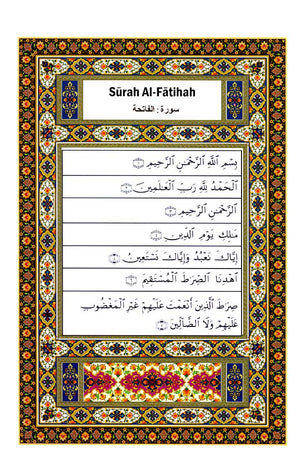 Sūrah Al-Fātihah
سورة : الفاتحة
بِسْمِ ٱللَّهِ ٱلرَّحْمَٰنِ ٱلرَّحِيمِ ۝١
ٱلْحَمْدُ لِلَّهِ رَبِّ ٱلْعَٰلَمِينَ ۝٢
ٱلرَّحْمَٰنِ ٱلرَّحِيمِ ۝٣
مَٰلِكِ يَوْمِ ٱلدِّينِ ۝٤
إِيَّاكَ نَعْبُدُ وَإِيَّاكَ نَسْتَعِينُ ۝٥
ٱهْدِنَا ٱلصِّرَٰطَ ٱلْمُسْتَقِيمَ ۝٦
صِرَٰطَ ٱلَّذِينَ أَنْعَمْتَ عَلَيْهِمْ غَيْرِ ٱلْمَغْضُوبِ
عَلَيْهِمْ وَلَا ٱلضَّآلِّينَ ۝٧